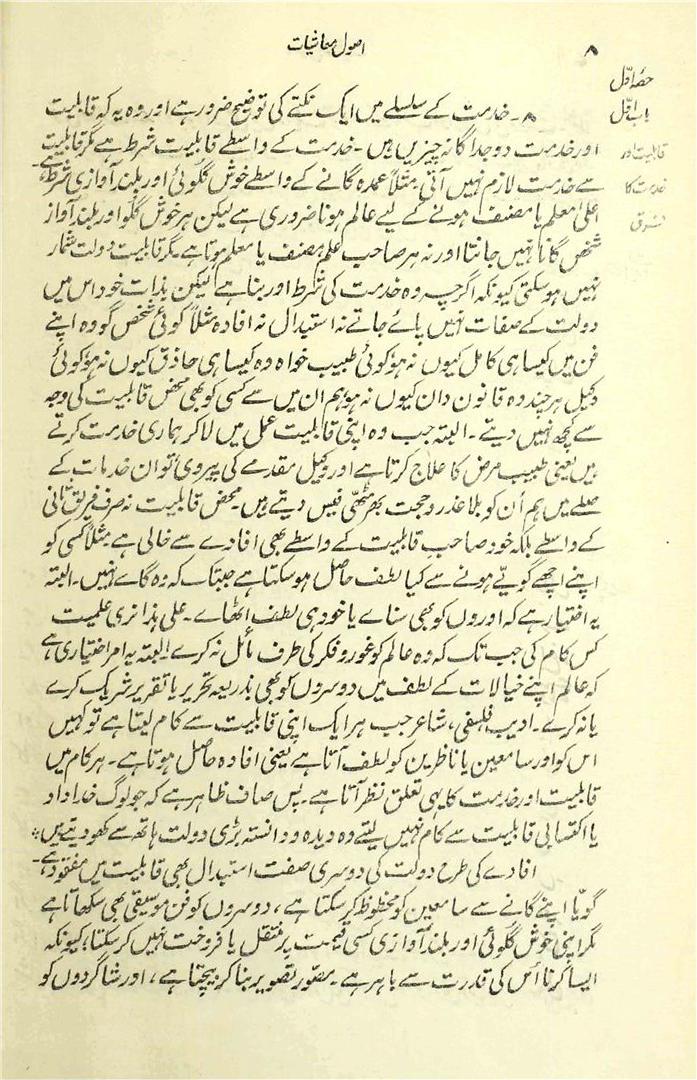 ۸
اصول معاشیات
حصہ اوّل
باب اوّل
قابلیت اور
خدمت کا
فرق
۸۔ خدمت کے سلسلے میں ایک نکتے کی توضیح ضرور ہے اور وہ یہ کہ قابلیت
اور خدمت دو جداگانہ چیزیں ہیں۔ خدمت کے واسطے قابلیت شرط ہے مگر قابلیت
سے خدمت لازم نہیں آتی مثلاً عمدہ گانے کے واسطے خوش گلوئی اور بلند آوازی شرط ہے۔
اعلیٰ معلم یا مصنف ہونے کے لیے عالم ہونا ضروری ہے لیکن ہر خوش گلو اور بلند آواز
شخص گانا نہیں جانتا اور نہ ہر صاحب علم مصنف یا معلم ہوتا ہے۔ مگر قابلیت دولت شمار
نہیں ہو سکتی کیونکہ اگرچہ وہ خدمت کی شرط اور بنا ہے لیکن بذات خود اس میں
دولت کے صفات نہیں پائے جاتے نہ استبدال نہ افادہ مثلاً کوئی شخص گو وہ اپنے
فن میں کیسا ہی کامل کیوں نہ ہو کوئی طبیب خواہ وہ کیسا ہی حاذق کیوں نہ ہو کوئی
وکیل ہر چند وہ قانون دان کیوں نہ ہو ہم ان میں سے کسی کو بھی محض قابلیت کی وجہ
سے کچھ نہیں دیتے۔ البتہ جب وہ اپنی قابلیت عمل میں لا کر ہماری خدمت کرتے
ہیں یعنی طبیب مرض کا علاج کرتا ہے اور وکیل مقدمے کی پیروی تو ان خدمات کے
صلے میں ہم اُن کو بلا عذر و حجت بھر مٹھی فیس دیتے ہیں۔ محض قابلیت نہ صرف فریق ثانی
کے واسطے بلکہ خود صاحب قابلیت کے واسطے بھی افادے سے خالی ہے مثلاً کسی کو
اپنے اچھے گویّے ہونے سے کیا لطف حاصل ہو سکتا ہے جبتک کہ وہ گاے نہیں۔ البتہ
یہ اختیار ہے کہ اوروں کو بھی سناے یا خود ہی لطف اٹھاے۔ علی ہذا نری علمیت
کس کام کی جب تک کہ وہ عالم کو غور و فکر کی طرف مائل نہ کرے البتہ یہ امر اختیاری ہے
کہ عالم اپنے خیالات کے لطف میں دوسروں کو بھی بذریعہ تحریر یا تقریر شریک کرے
یا نہ کرے۔ ادیب، فلسفی، شاعر جب ہر ایک اپنی قابلیت سے کام لیتا ہے تو کہیں
اس کو اور سامعین یا ناظرین کو لطف آتا ہے یعنی افادہ حاصل ہوتا ہے۔ ہر کام میں
قابلیت اور خدمت کا یہی تعلق نظر آتا ہے۔ پس صاف ظاہر ہے کہ جو لوگ خداداد
یا اکتسابی قابلیت سے کام نہیں لیتے وہ دیدہ و دانستہ بڑی دولت ہاتھ سے کھو دیتے ہیں
افادے کی طرح دولت کی دوسری صفت استبدال بھی قابلیت میں مفقود ہے۔
گویّا اپنے گانے سے سامعین کو محظوظ کر سکتا ہے، دوسروں کو فن موسیقی بھی سکھاتا ہے
مگر اپنی خوش گلوئی اور بلند آوازی کسی قیمت پر منتقل یا فروخت نہیں کر سکتا؛ کیونکہ
ایسا کرنا اُس کی قدرت سے باہر ہے۔ مصوّر تصویر بنا کر بیچتا ہے، اور شاگردوں کو